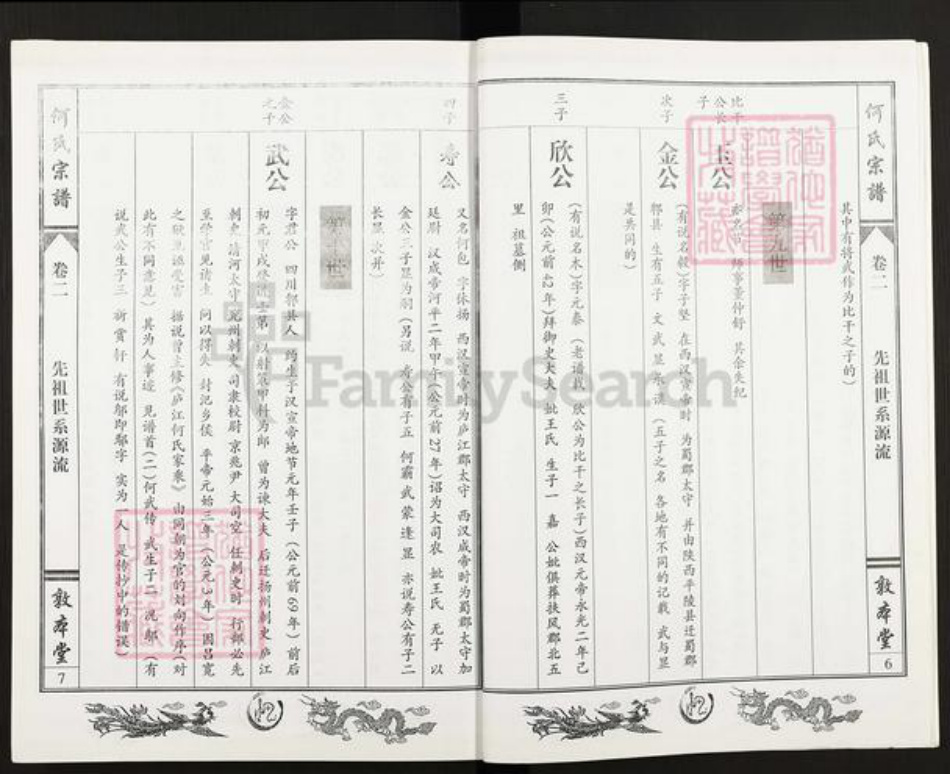 何氏宗譜
卷二
先祖世系源流
敦本堂
6
其中有将武作为比干之子的)
第九世
比干公长子
玉公
师事董仲舒 其余失纪
次子
金公
(有说名毅)字子坚 在西汉宣帝时 为蜀郡太守 并由陕西平陵县迁蜀郡
郫县 生有五子 文 武 显 (五子之名 各地有不同的记载 武与显
是共同的)
三子
欣公
(有说名木)字元泰 (老谱载 欣公为比干之长子)西汉元帝永光二年己
卯(公元前42年)拜御史大夫 妣王氏 生子一 嘉 公妣俱葬扶风郡北五
里 祖墓侧
四子
寿公
又名何包 字休扬 西汉宣帝时为庐江郡太守 西汉成帝时为蜀郡太守加
廷尉 汉成帝河平二年甲午(公元前27年)诏为大司农 妣王氏 无子 以
金公三子显为嗣(另说 寿公有子五 何霸 武 蒙 逢 显 亦说寿公有子二
长显 次并)
第十世
金公之子
武公
字君公 四川郫县人 约生于汉宣帝地节元年壬子(公元前69年)前后
初元甲戌 以射策甲科为郎 曾为谏大夫 后迁扬州刺史 庐江
刺史 清河太守 兖州刺史 司隶校尉 京兆尹 大司空 任刺史时 行部必先
至学官见诸生 问以得失 封汜乡侯 平帝元始三年(公元3年)因吕宽
之狱见诬受害 据说曾主修《庐江何氏家乘》 由同朝为官的刘向作序(对
此有不同意见) 其为人事迹 见谱首(二)何武传 武生子二 况 鄢 (有
说武公生子三 有说邬即鄢字 实为一人 是传抄中的错误)
何氏宗譜
卷二
先祖世系源流
敦本堂
7
FamilySearch